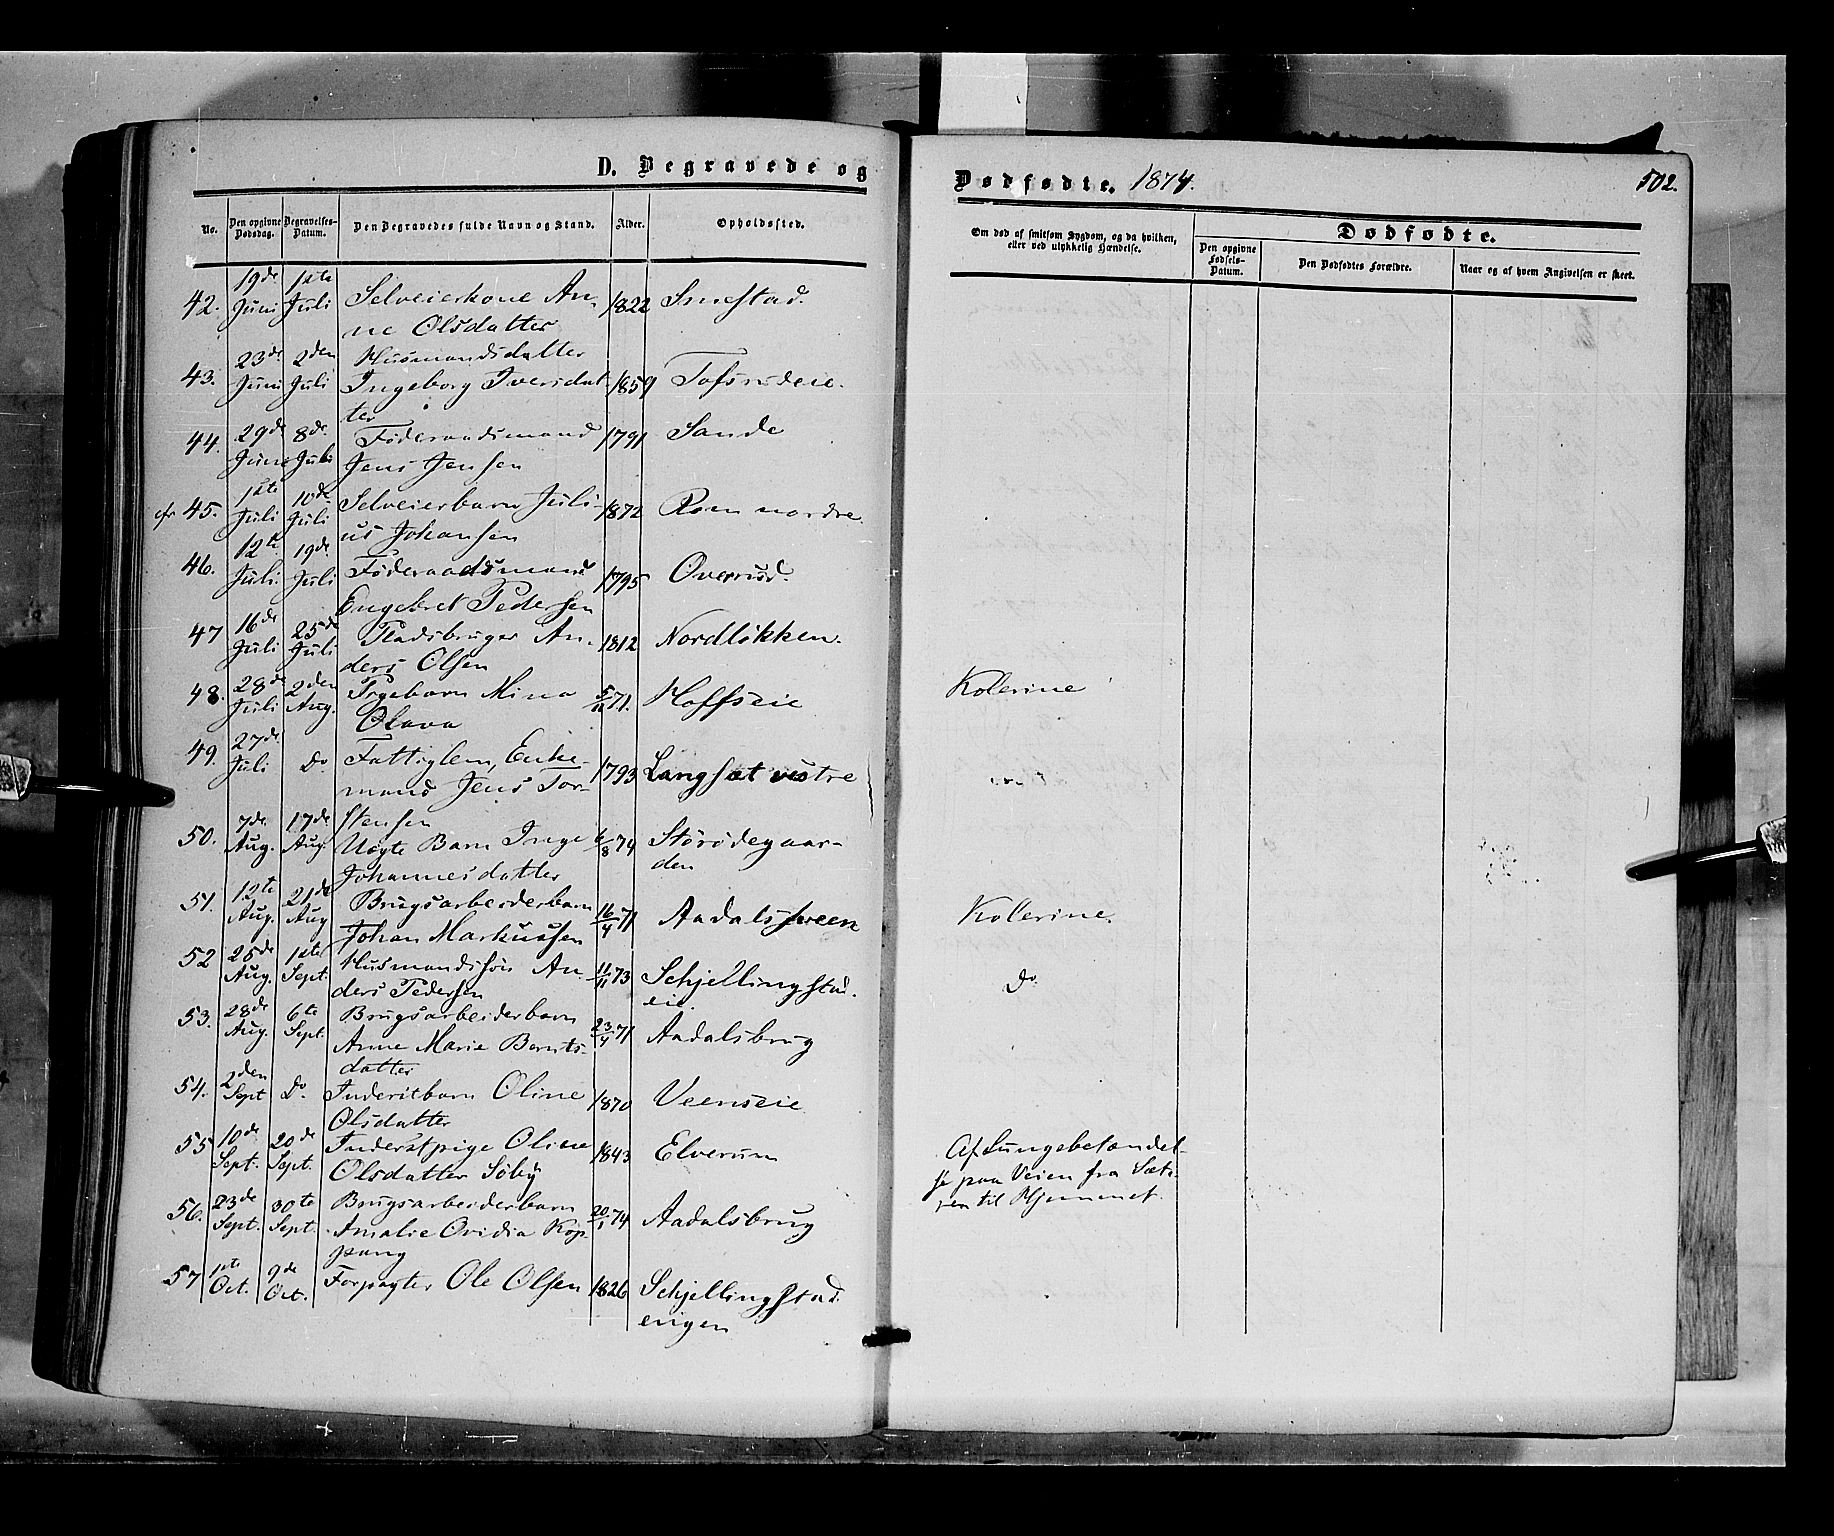 D. Begravede og
No. Den opgivne Dødsdag. Begravelses-Datum. Den Begravedes fulde Navn og Stand. Alder. Opholdssted.
42. 19de Juni 1ste Juli Selveierkone An-
ne Olsdatter 1822 Smestad.
43. 23de Juni 2den Juli Husmandsdatter
Ingeborg Iversdat-
ter 1859 Tofsrudeie.
44. 29de Juni 8de Juli Føderaadsmand
Jens Jensen 1791 Sande
cfr 45. 1ste Juli 10de Juli Selveierbarn Juli-
us Johansen 1872 Roen nordre.
46. 12te Juli 19de Juli Føderaadsmand
Engebret Pedersen 1795 Overrud.
47 16de Juli 25de Juli Pladsbruger An-
ders Olsen 1812 Nordløkken.
48. 28de Juli 2den Aug. Pigebarn Mina
Olava 5/11 71. Hoffseie
49. 27de Juli Do Fattiglem, Enke-
mand Jens Tor-
stensen 1793 Langsæt vestre
50. 7de Aug. 17de Aug. Uægte Barn Inge
Johannesdatter 6/8 74 Storødegaar-
den
51. 12te Aug. 21de Aug Brugsarbeiderbarn
Johan Markussen 16/4 71 Aadalssveen
52 25de Aug. 1ste Sept. Husmandssøn An-
ders Pedersen 11/11 73 Schjellingstad.
eie
53. 28de Aug. 6te Sept. Brugsarbeiderbarn
Anne Marie Bernts-
datter 23/4 71 Aadalsbrug
54. 2den Sept Do. Inderstbarn Oline
Olsdatter 1870 Veenseie
55 10de Sept. 20de Sept. Inderstpige Oline
Olsdatter Søby 1843 Elverum
56. 23de Sept. 30te Sept. Brugsarbeiderbarn
Amalie Ovidia Kop-
pang 20/1 74 Aadalsbrug
57 1ste Oct. 9de Oct. Forpagter Ole Olsen 1826 Schjellingstad
engen
Dødfødte. 1874. 502.
Om død af smitsom Sygdom, og da hvilken,
eller ved ulykkelig Hændelse.
Dødfødte.
Den opgivne Fødsels-Datum. Den Dødfødtes Forældre. Naar og af hvem Angivelsen er skeet.
Kolerine
Kolerine.
Do
Af Lungebetændel-
se paa Veien fra Sæt-
ren til Hjemmet.